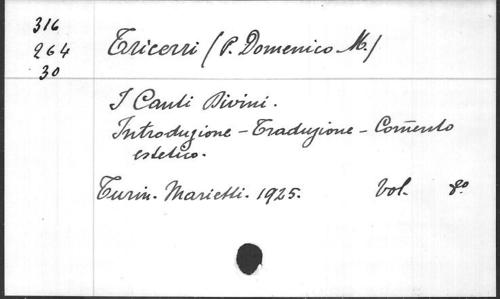 316
264
30
Tricerri (P. Domenico M.)
I Canti Divini.
Introduzione - Traduzione - Com̄ento
estetico.
Turin. Marietti. 1925. Vol. 8º